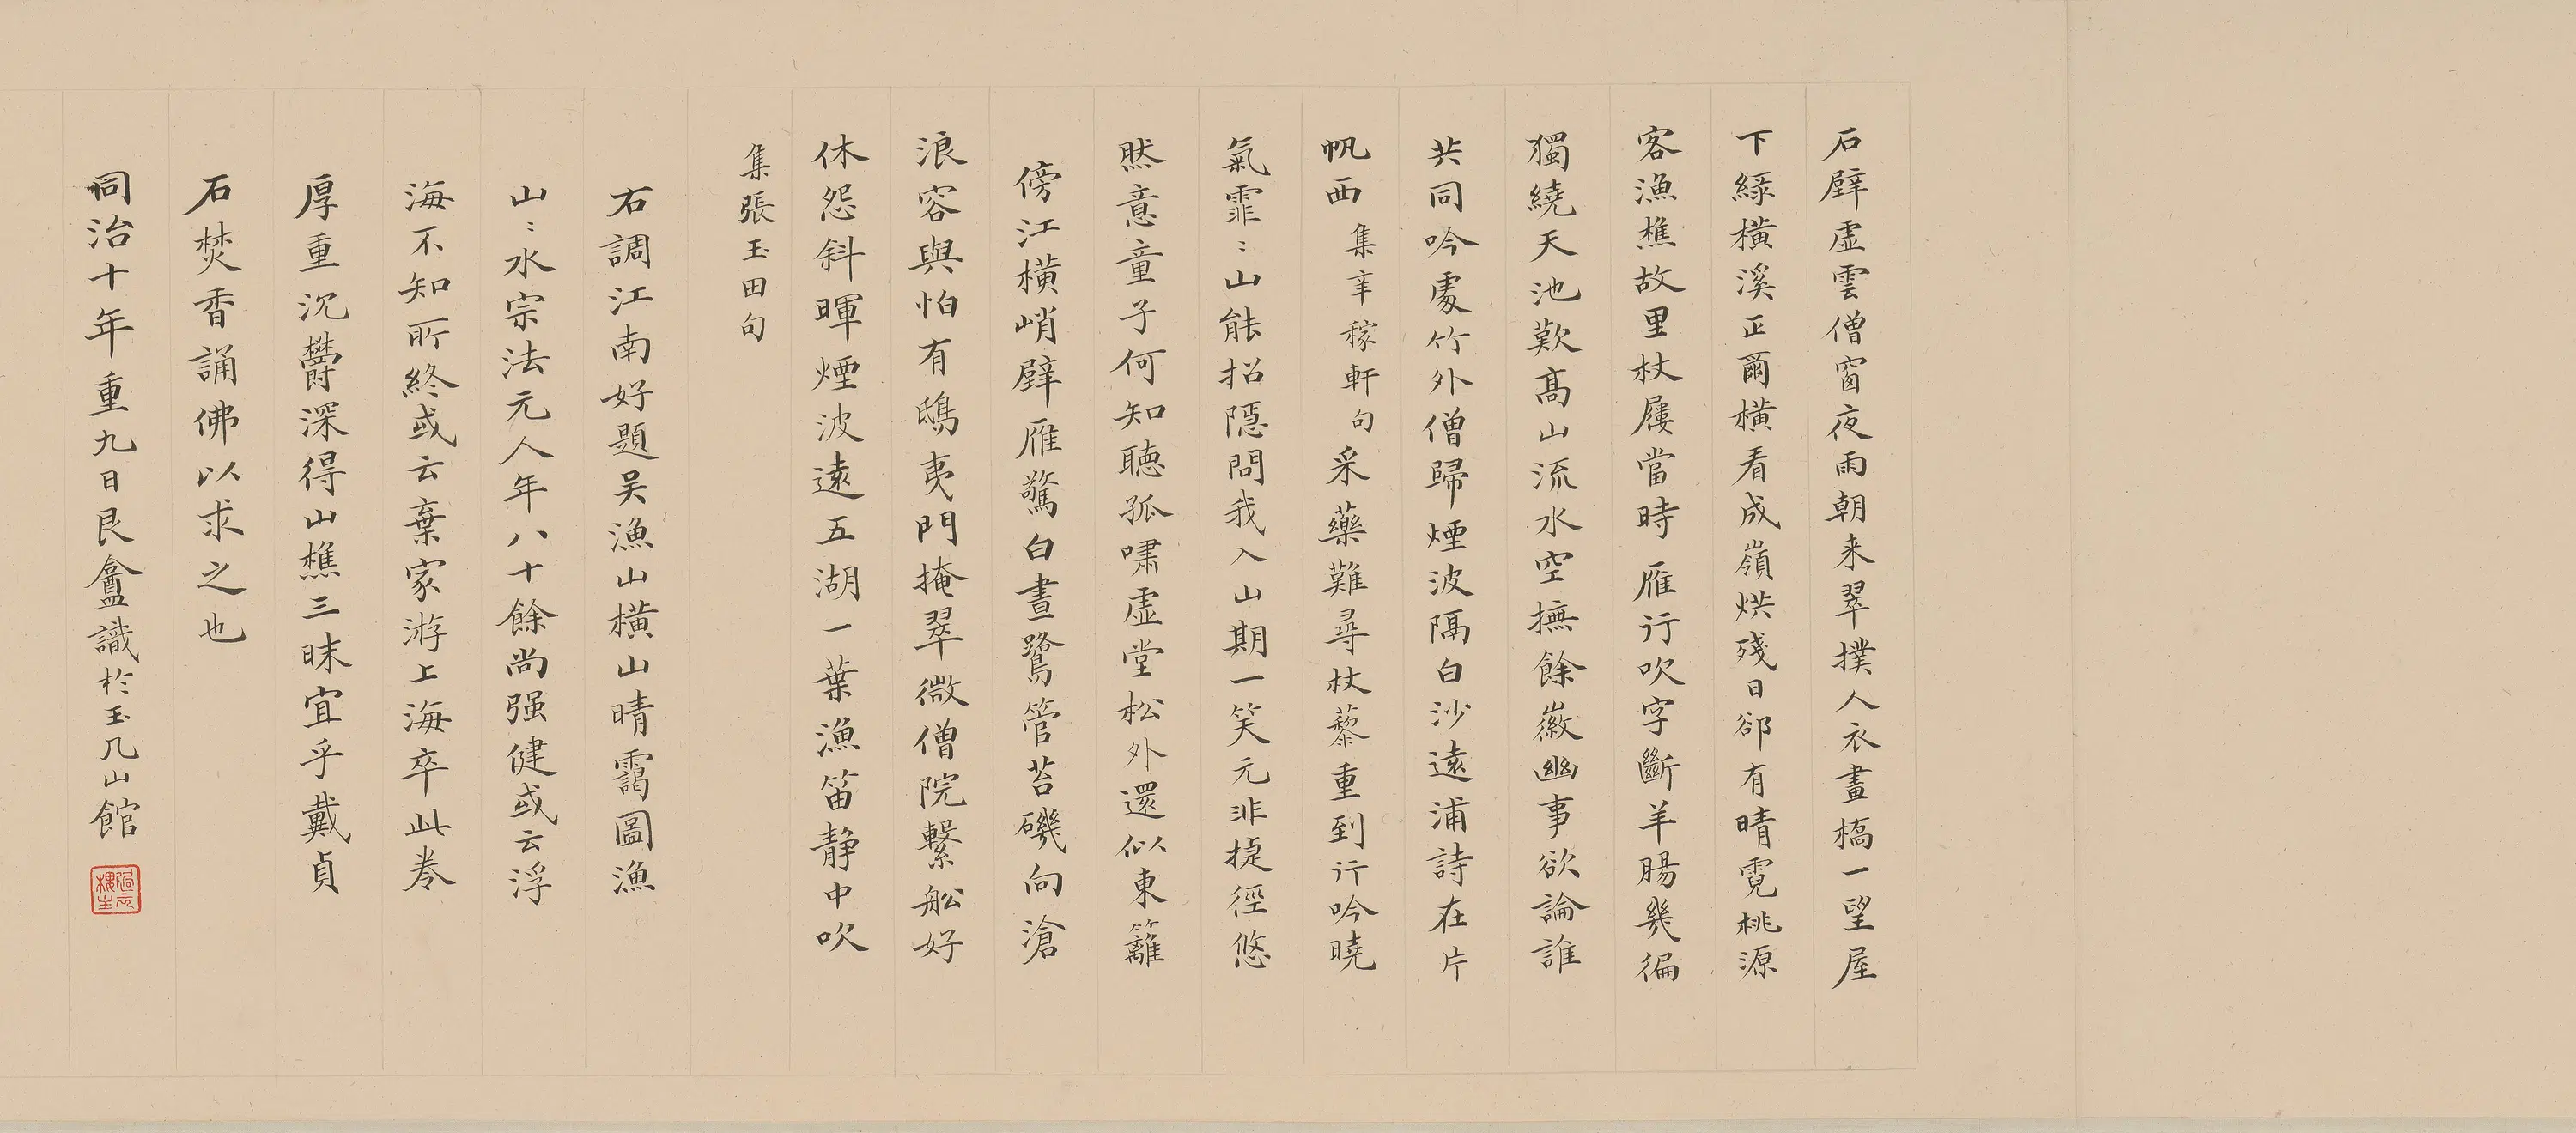 石壁虛雲僧窗夜雨朝来翠撲人衣畫橋一望屋
下緑橫溪正爾橫看成嶺烘殘日郤有晴霓桃源
客漁樵故里杖屨當時雁行吹字斷羊腸幾徧
獨繞天池歎髙山流水空撫餘徽幽事欲論誰
共同吟處竹外僧歸煙波隔白沙遠浦詩在片
帆西集辛稼軒句采藥難尋杖藜重到行吟曉
氣霏〻山能招隱問我入山期一笑元非捷徑悠
然意童子何知聽孤嘯虛堂松外還似東籬
傍江橫峭壁雁驚白晝鷺管苔磯向滄
浪容與怕有鴟夷門掩翠微僧院繫船好
休怨斜暉煙波遠五湖一葉漁笛静中吹
集張玉田句
右調江南好題吴漁山橫山晴靄圖漁
山〻水宗法元人年八十餘尚强健或云浮
海不知所終或云棄家游上海卒此卷
厚重沉欝深得山樵三昧宜乎戴貞
石焚香誦佛以求之也
同治十年重九日艮盦識於玉几山館
過雲樓主